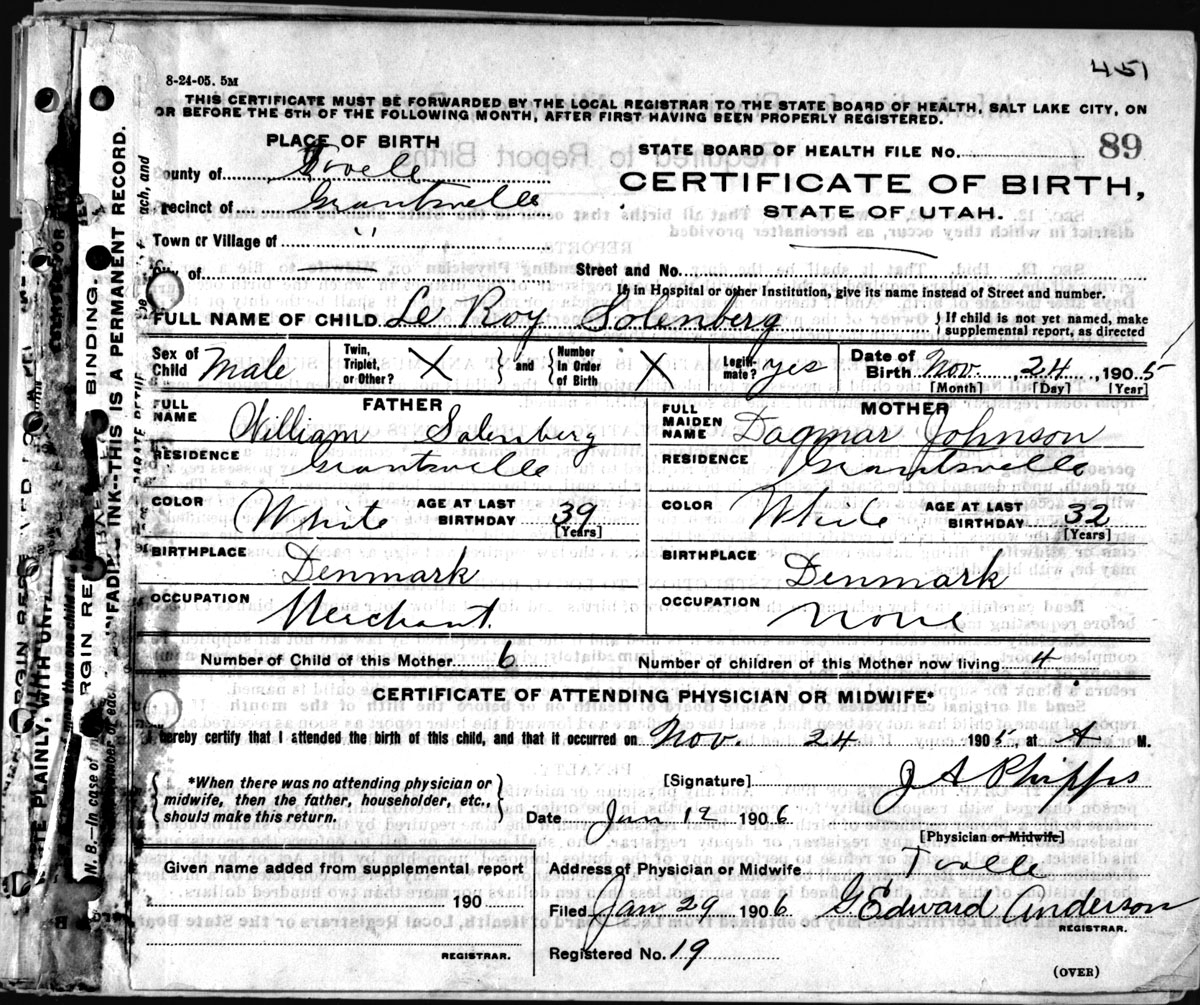 451
8-24-05. 5M
THIS CERTIFICATE MUST BE FORWARDED BY THE LOCAL REGISTRAR TO THE STATE BOARD OF HEALTH, SALT LAKE CITY, ON
OR BEFORE THE 5TH OF THE FOLLOWING MONTH, AFTER FIRST HAVING BEEN PROPERLY REGISTERED.
PLACE OF BIRTH
STATE BOARD OF HEALTH FILE No. 89
ounty of Tooele
CERTIFICATE OF BIRTH,
recinct of Grantsville
STATE OF UTAH.
Town or Village of "
of
Street and No.
If in Hospital or other Institution, give its name instead of Street and number.
FULL NAME OF CHILD Le Roy Solenberg
{If child is not yet named, make
supplemental report, as directed
Sex of Child Male
Twin, Triplet, or Other? X } and { Number in Order of Birth X
Legiti- mate? yes
Date of Birth Nov. 24, 1905
[Month] [Day] [Year]
FATHER
MOTHER
FULL NAME William Solenberg
FULL MAIDEN NAME Dagmar Johnson
RESIDENCE Grantsville
RESIDENCE Grantsville
COLOR White AGE AT LAST BIRTHDAY 39 [Years]
COLOR White AGE AT LAST BIRTHDAY 32 [Years]
BIRTHPLACE Denmark
BIRTHPLACE Denmark
OCCUPATION Merchant.
OCCUPATION None
Number of Child of this Mother 6
Number of children of this Mother now living 4
CERTIFICATE OF ATTENDING PHYSICIAN OR MIDWIFE*
I hereby certify that I attended the birth of this child, and that it occurred on Nov. 24 1905 at A M.
*When there was no attending physician or
midwife, then the father, householder, etc.,
should make this return.
[Signature] J A Phipps
Date Jan 12 1906
[Physician or Midwife]
Given name added from supplemental report
190
REGISTRAR.
Address of Physician or Midwife Tooele
Filed Jan 29 1906 G Edward Anderson
REGISTRAR.
Registered No. 19
(OVER)
THIS IS A PERMANENT RECORD.
BINDING.
TE PLAINLY, WITH UNF
N. B.—In case of